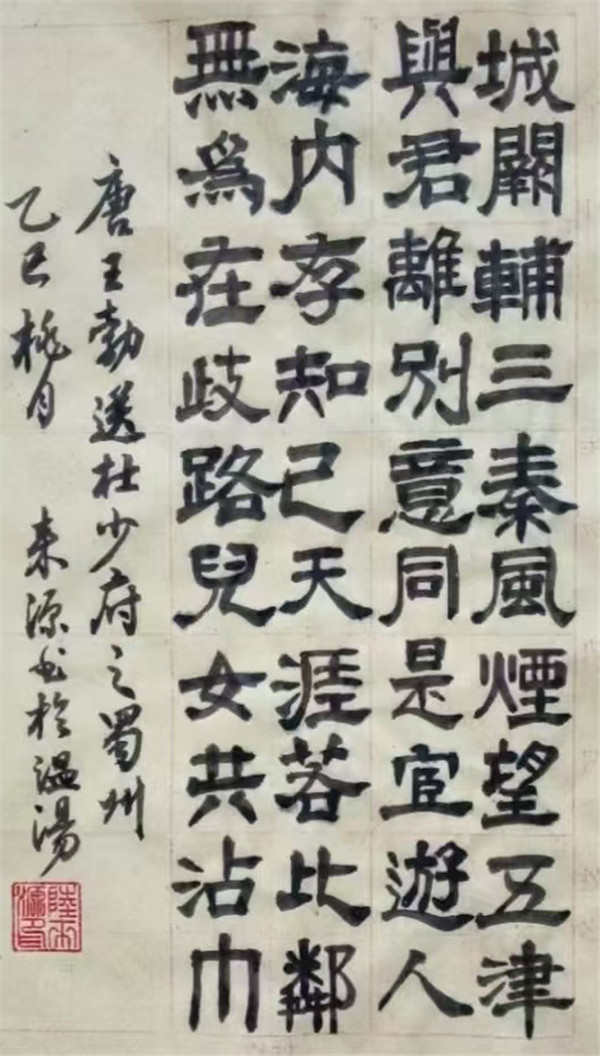 城闕輔三秦風煙望五津
與君離別意同是宦遊人
海内存知己天涯若比鄰
無爲在歧路兒女共沾巾
唐王勃送杜少府之蜀州
乙巳桃月 来源书於温湯